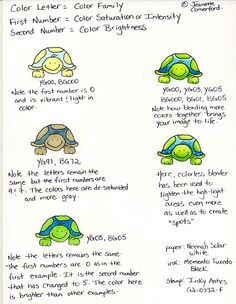 Color Letter = Color Family
First Number = Color Saturation or Intensity
Second Number = Color Brightness
© Jeanette
YG00, BG000
Note the first number is 0
and is vibrant & light in
color.
YG00, YG03, YG05
BG000, BG01, BG05
Note how blending more
colors together brings
your image to life.
YG91, BG72
Note the letters remain the
same but the first numbers are
9 & 7. The colors here are de-saturated
and more gray.
Here, colorless blender
has been used to
lighten the high-light
areas even more
as well as to create
"spots"
YG05, BG05
Note the letters remains the same.
The first numbers are 0 as in the
first example. It is the second number
that has changed to 5. The color here
is brighter than other examples.
paper: Neenah Solar
white
ink: Memento Tuxedo
Black
Stamp: Inky Antics